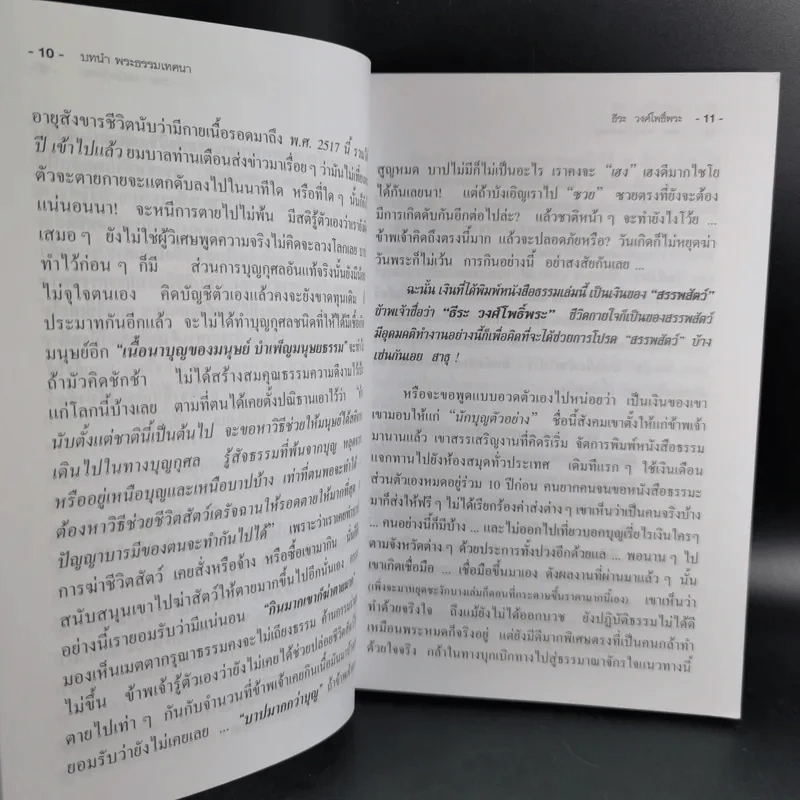 - 10 - บทนำ พระธรรมเทศนา
อายุสังขารชีวิตนับว่ามีกายเนื้อรอดมาถึง พ.ศ. 2517 นี้
ปี เข้าไปแล้ว ยมบาลท่านเตือนส่งข่าวมาเรื่อย ๆ ว่ามันไม่เที่ยง
ตัวจะตายกายจะแตกดับลงไปในนาทีใด หรือที่ใด ๆ นั้น
แน่นอนนา! จะหนีการตายไปไม่พ้น มีสติรู้ตัวเอง
เสมอ ๆ ยังไม่ใช่ผู้วิเศษพูดความจริงไม่คิดจะลวงโลกเลย
ทำไว้ก่อน ๆ ก็มี ส่วนการบุญกุศลอันแท้จริงนั้นยัง
ไม่จุใจตนเอง คิดบัญชีตัวเองแล้วคงจะยังขาดทุนเดิม
ประมาทกันอีกแล้ว จะไม่ได้ทำบุญกุศลชนิดที่ให้ได้มี
มนุษย์อีก “เนื้อนาบุญของมนุษย์ บำเพ็ญมนุษยธรรม”
ถ้ามัวคิดชักช้า ไม่ได้สร้างสมคุณธรรมความดีงามไว้
แก่โลกนี้บ้างเลย ตามที่ตนได้เคยตั้งปณิธานเอาไว้ว่า
นับตั้งแต่ชาตินี้เป็นต้นไป จะขอหาวิธีช่วยให้มนุษย์ได้
เดินไปในทางบุญกุศล รู้สัจธรรมที่พ้นจากบุญ
หรืออยู่เหนือบุญและเหนือบาปบ้าง เท่าที่ตนพอจะทำได้
ต้องหาวิธีช่วยชีวิตสัตว์เดรัจฉานให้รอดตายให้มากที่สุด
ปัญญาบารมีของตนจะทำกันไปได้” เพราะว่าเราเคย
การฆ่าชีวิตสัตว์ เคยสั่งหรือจ้าง หรือซื้อเขามากิน
สนับสนุนเขาไปฆ่าสัตว์ให้ตายมากขึ้นไปอีกนั่นเอง
อย่างนี้เรายอมรับว่ามีแน่นอน “กินมากเขาก็ฆ่าตายมาก”
มองเห็นเมตตากรุณาธรรมคงจะไม่เถียงธรรม
ไม่ขึ้น ข้าพเจ้ารู้ตัวเองว่ายังไม่เคยได้ช่วยปล่อยชีวิตสัตว์
ตายไปเท่า ๆ กันกับจำนวนที่ข้าพเจ้าเคยกินเนื้อมัน
ยอมรับว่ายังไม่เคยเลย ... “บาปมากกว่าบุญ”
ธีระ วงศ์โพธิ์พระ - 11 -
สูญหมด บาปไม่มีก็ไม่เป็นอะไร เราคงจะ “เฮง” เฮงดีมากไชโย
ได้กันเลยนา! แต่ถ้าบังเอิญเราไป “ซวย” ซวยตรงที่ยังจะต้อง
มีการเกิดดับกันอีกต่อไปล่ะ? แล้วชาติหน้า ๆ จะทำยังไงโว้ย ...
ข้าพเจ้าคิดถึงตรงนี้มาก แล้วจะปลอดภัยหรือ? วันเกิดก็ไม่หยุดฆ่า
วันพระก็ไม่เว้น การกินอย่างนี้ อย่าสงสัยกันเลย ...
ฉะนั้น เงินที่ได้พิมพ์หนังสือธรรมเล่มนี้ เป็นเงินของ “สรรพสัตว์”
ข้าพเจ้าชื่อว่า “ธีระ วงศ์โพธิ์พระ” ชีวิตกายใจก็เป็นของสรรพสัตว์
มีอุดมคติทำงานอย่างนี้ก็เพื่อคิดที่จะได้ช่วยการโปรด “สรรพสัตว์” บ้าง
เช่นกันเอย สาธุ !
หรือจะขอพูดแบบอวดตัวเองไปหน่อยว่า เป็นเงินของเขา
เขามอบให้แก่ “นักบุญตัวอย่าง” ชื่อนี้สังคมเขาตั้งให้แก่ข้าพเจ้า
มานานแล้ว เขาสรรเสริญงานที่คิดริเริ่ม จัดการพิมพ์หนังสือธรรม
แจกทานไปยังห้องสมุดทั่วประเทศ เดิมทีแรก ๆ ใช้เงินเดือน
ส่วนตัวเองหมดอยู่ร่วม 10 ปีก่อน คนยากคนจนขอหนังสือธรรมะ
มาก็ส่งให้ฟรี ๆ ไม่ได้เรียกร้องค่าส่งต่าง ๆ เขาเห็นว่าเป็นคนจริงบ้าง
... คนอย่างนี้ก็มีบ้าง ... และไม่ออกไปเที่ยวบอกบุญเรี่ยไรเงินใครๆ
ตามจังหวัดต่าง ๆ ด้วยประการทั้งปวงอีกด้วยแล ... พอนาน ๆ ไป
เขาเกิดเชื่อมือ ... เชื่อมือขึ้นมาเอง ดังผลงานที่ผ่านมาแล้ว ๆ นั้น
(เพิ่งจะมาหยุดชะงักบางเล่มก็ตอนที่กระดาษขึ้นราคามากนี้เอง) เขาเห็นว่า
ทำด้วยจริงใจ ถึงแม้ยังไม่ได้ออกบวช ยังปฏิบัติธรรมไม่ได้ดี
เหมือนพระหมดก็จริงอยู่ แต่ยังมีดีมากพิเศษตรงที่เป็นคนกล้าทำ
ด้วยใจจริง กล้าในทางบุกเบิกทางไปสู่ธรรมาณาจักรใจแนวทางนี้